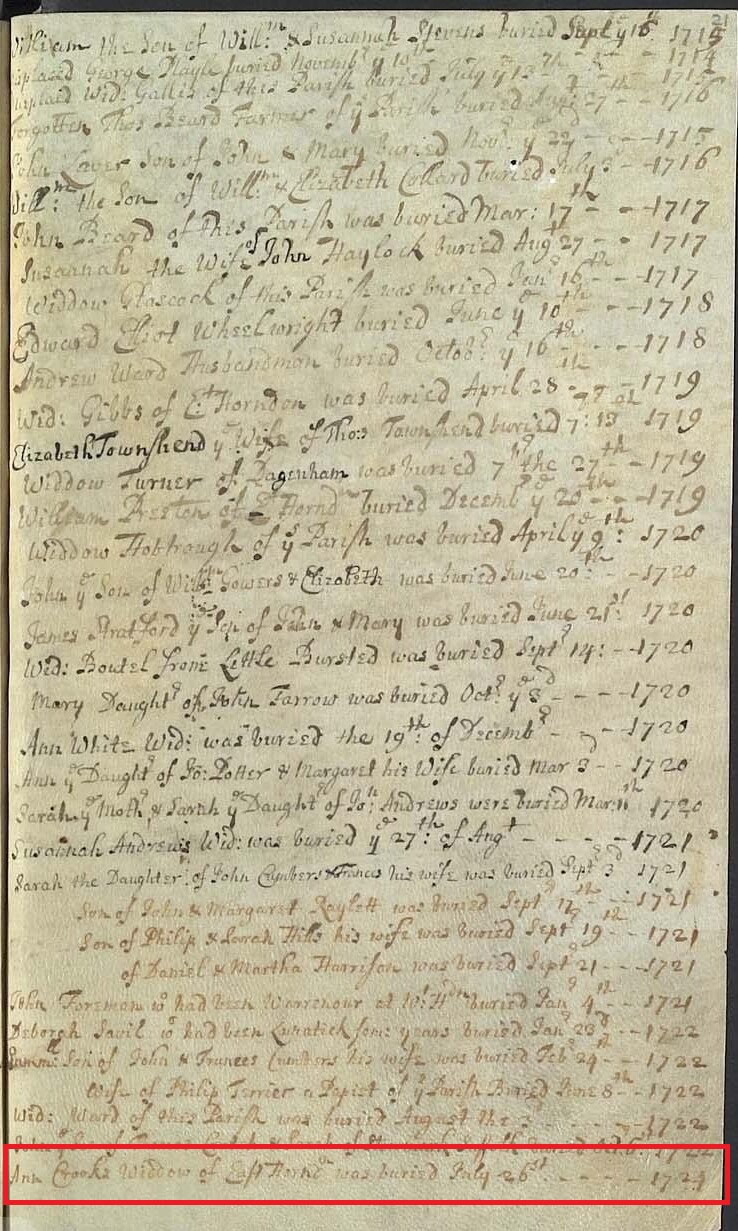 21
William the Son of Will:m & Susannah Stevens buried Sept ye 16th 1715
George buried Novemb ye 10th - - 1714
Wid: Gallis of this Parish buried July ye 13th - -
forgotten Thos Beard Farmer of ye Parish buried 27th - - 1716
John Laver Son of John & Mary buried Novr ye 22 - - - 1715
Will:m the Son of Will:m & Elizabeth Collard buried July 3d - 1716
John Beard of this Parish was buried Mar: 17th - - 1717
Susannah the Wife of John Haylock buried Augt 27 - - 1717
Widdow Glascock of this Parish was buried Janr 16th - - 1717
Edward Eliot Wheelwright buried June ye 10th - - 1718
Andrew Ward Husbandman buried Octobr ye 16th - - 1718
Wid: Gibbs of Et Horndon was buried April 28 - - 1719
Elizabeth Townshend ye Wife of Thos Townshend buried 7: 13 1719
Widdow Turner of Dagenham was buried 7 the 27th - 1719
William Preston of Et Hornd buried Decemb ye 20th - - 1719
Widdow Hobtrough of ye Parish was buried April ye 9th: 1720
John ye Son of Will:m Gowers & Elizabeth was buried June 20th: - - 1720
James Stratford ye Son of John & Mary was buried June 21st: 1720
Wid: Boutel from Little Bursted was buried Sept 14: - - 1720
Mary Daughtr of John Farrow was buried Octr ye 3d - - - - 1720
Ann White Wid: was buried the 19th: of Decembr - - - 1720
Ann ye Daughtr of Jo: Potter & Margaret his Wife buried Mar 3 - - 1720
Sarah ye Mothr & Sarah ye Daughtr of Jon: Andrews were buried Mar: 11th 1720
Susannah Andrews Wid: was buried ye 27th: of Augt - - - - - 1721
Sarah the Daughter of John Cumbers & Frances his wife was buried Septr 3d 1721
Son of John & Margaret Raylett was buried Sept 17th - - 1721
Son of Philip & Sarah Hills his wife was buried Sept 19th - - 1721
of Daniel & Martha Harrison was buried Septr 21 - - - 1721
John Foreman wo had been Warrenour at Wt Hdn buried Janr 4th - - 1721
Deborah Savil wo had been Lunatick some years buried Janr 23d - - 1722
Son of John & Frances Cumbers his wife was buried Febr 24th - - 1722
Wife of Philip Terrier a Papist of ye Parish Buried June 8th - - 1722
Wid: Ward of this Parish was buried August the 3 - - - - - 1722
Ann Crooks Widdow of East Hornd was buried July 26st - - - - - 1724